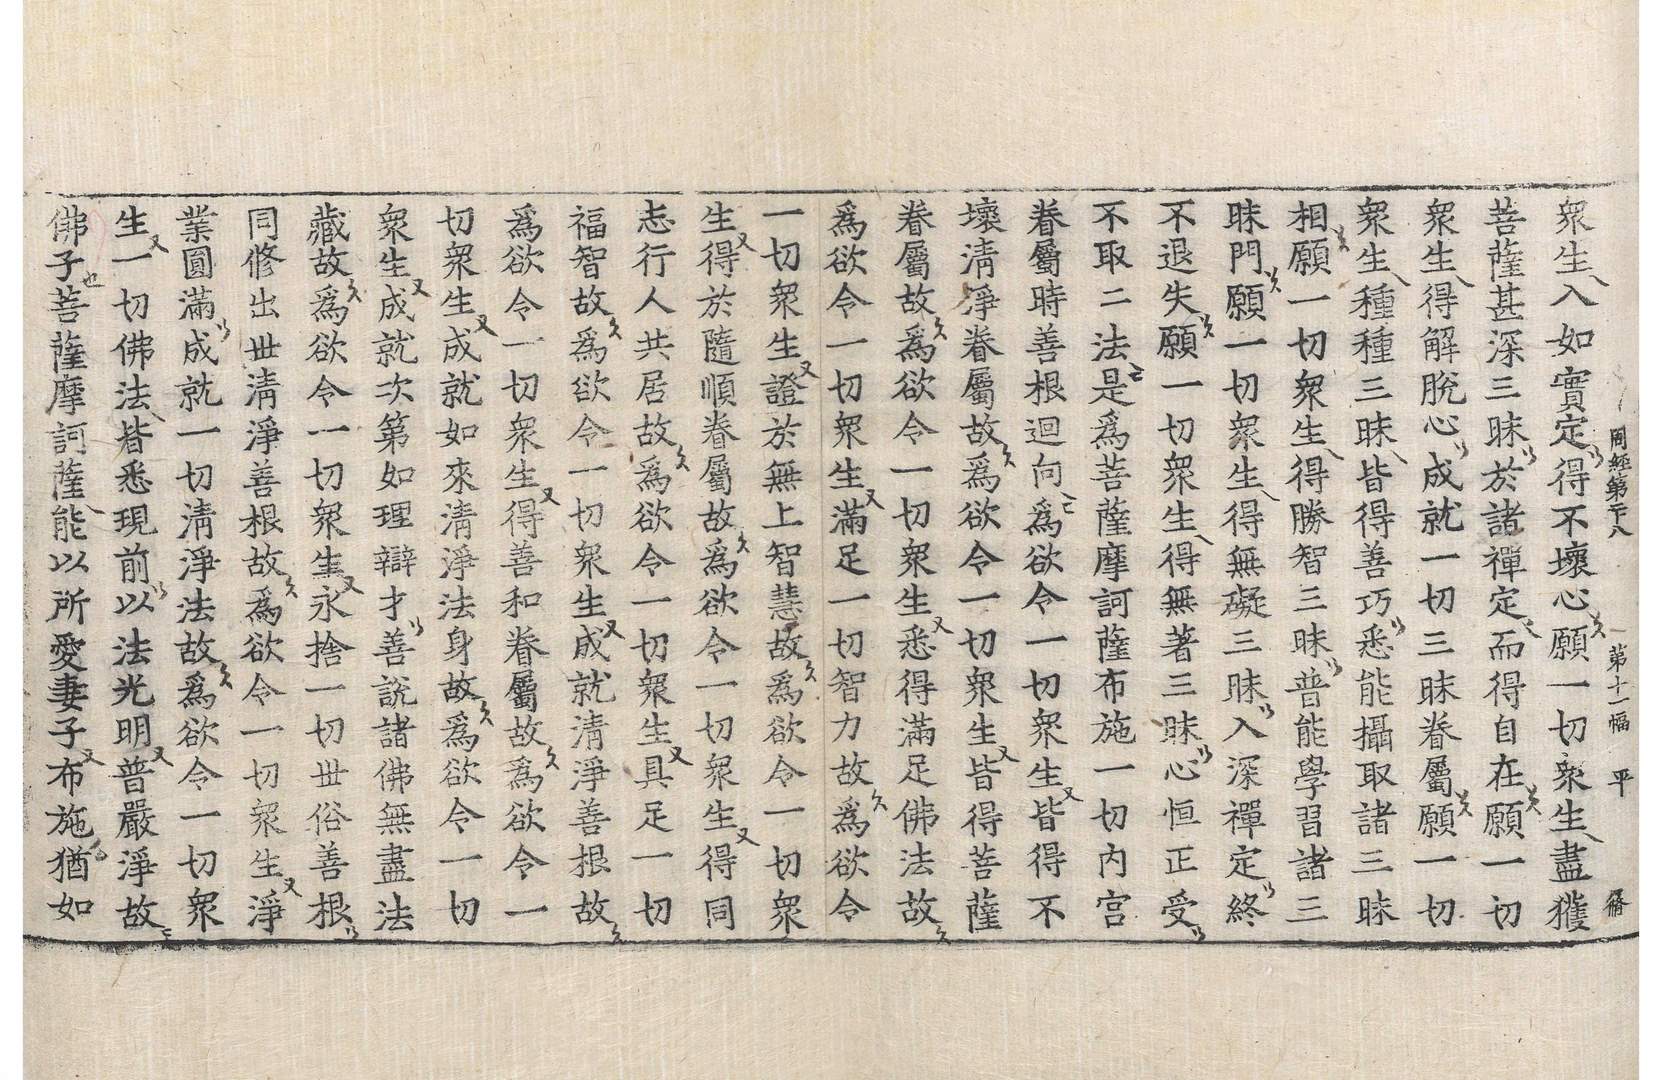 周經第廿八 第十一幅 平
眾生入如實定得不壞心願一切眾生盡獲
菩薩甚深三昧於諸禪定而得自在願一切
眾生得解脫心成就一切三昧眷屬願一切
眾生種種三昧皆得善巧悉能攝取諸三昧
相願一切眾生得勝智三昧普能學習諸三
昧門願一切眾生得無礙三昧入深禪定終
不退失願一切眾生得無著三昧心恒正受
不取二法是為菩薩摩訶薩布施一切內宮
眷屬時善根迴向為欲令一切眾生皆得不
壞清淨眷屬故為欲令一切眾生皆得菩薩
眷屬故為欲令一切眾生悉得滿足佛法故
為欲令一切眾生滿足一切智力故為欲令
一切眾生證於無上智慧故為欲令一切眾
生得於隨順眷屬故為欲令一切眾生得同
志行人共居故為欲令一切眾生具足一切
福智故為欲令一切眾生成就清淨善根故
為欲令一切眾生得善和眷屬故為欲令一
切眾生成就如來清淨法身故為欲令一切
眾生成就次第如理辯才善說諸佛無盡法
藏故為欲令一切眾生永捨一切世俗善根
同修出世清淨善根故為欲令一切眾生淨
業圓滿成就一切清淨法故為欲令一切眾
生一切佛法皆悉現前以法光明普嚴淨故
佛子菩薩摩訶薩能以所愛妻子布施猶如